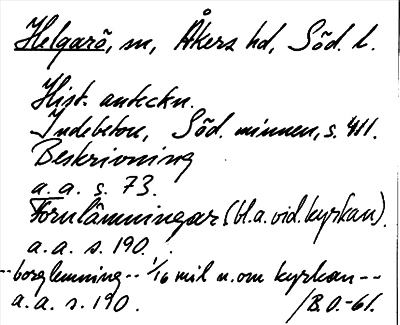 Helgarö, sn, Åkers hd, Söd. l.
Hist. anteckn.
Indebetou, Söd. minnen, s. 411.
Beskrivning
a. a. s. 73.
Fornlämningar (bl.a. vid kyrkan).
a. a. s. 190.
--borglemning-- 1/16 mil n.om kyrkan --
a. a. s. 190. /B.O.-61.